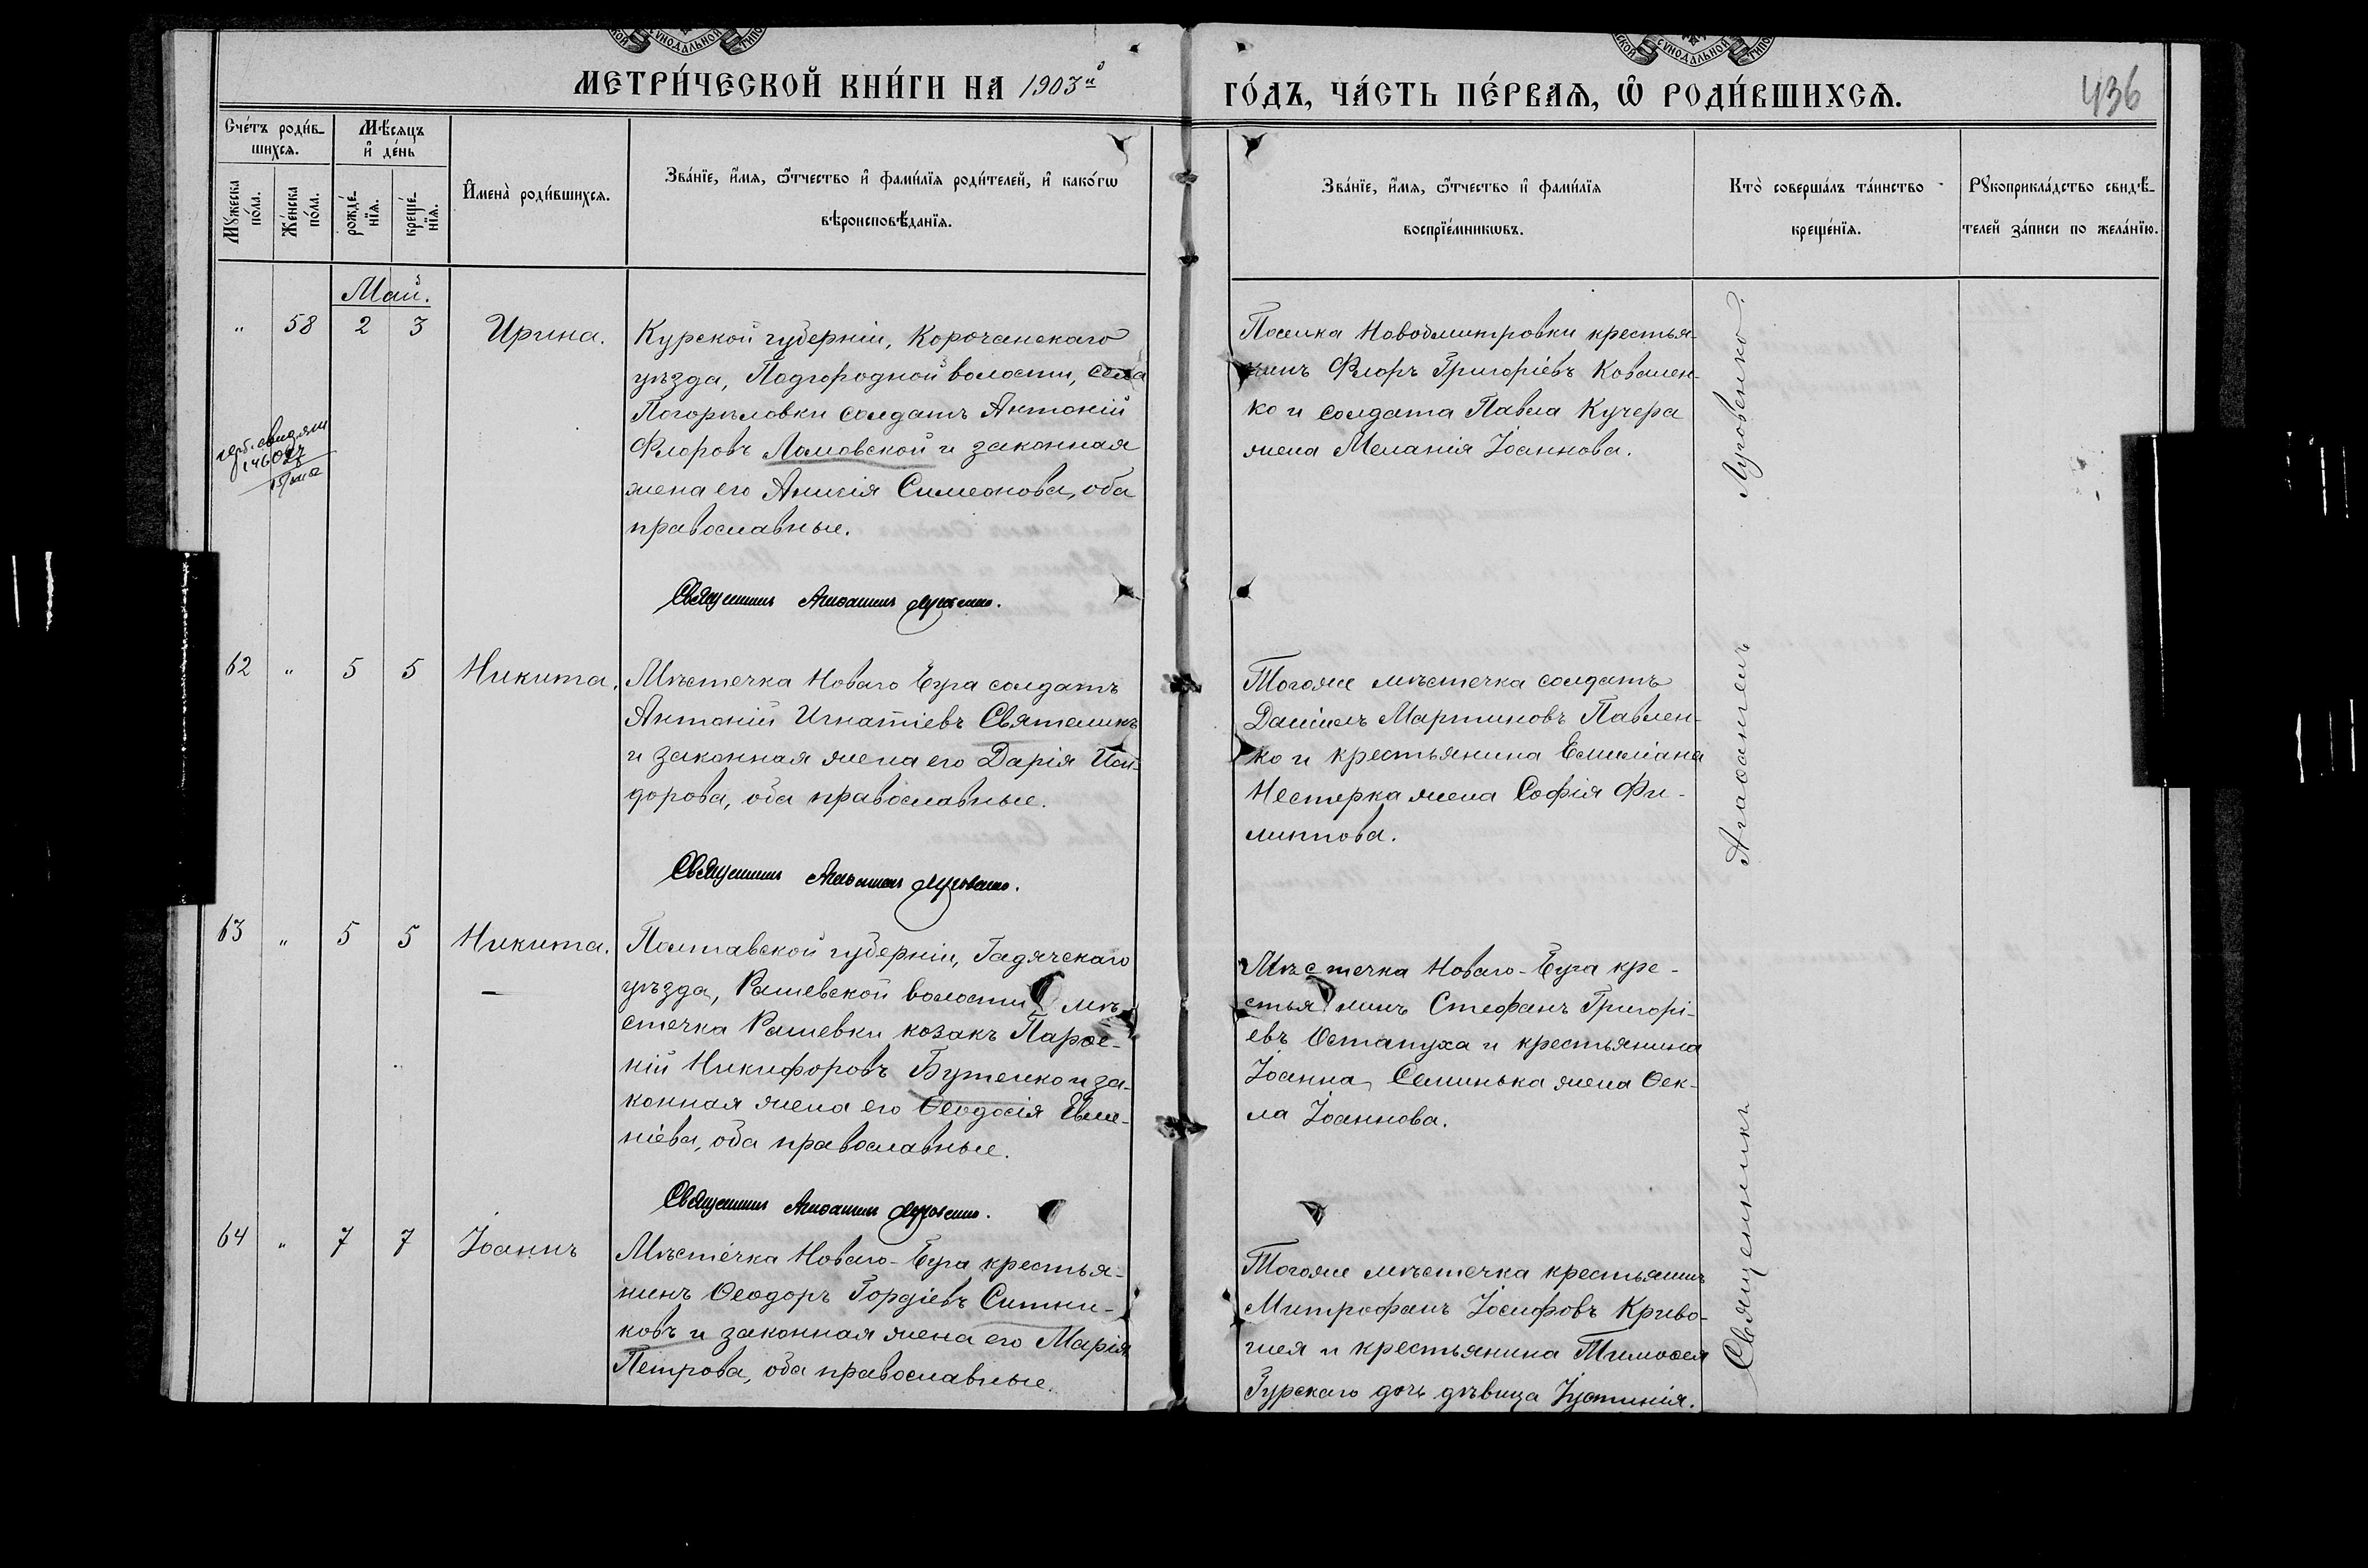 МЕТРИ́ЧЕСКОЙ КНИ́ГИ НА 1903й
ГО́ДЪ, ЧА́СТЬ ПЕ́РВАѦ, Ѡ҆ РОДИ́ВШИХСѦ.
436
Сче́тъ роди́в-
шихсѧ.
Мѣ́сѧцъ
и҆ де́нь
Мꙋ́жеска
по́ла.
Же́нска
по́ла.
рожде́-
нїѧ.
креще́-
нїѧ.
И҆мена̀ роди́вшихсѧ.
Зва́нїе, и҆́мѧ, ѻ҆́тчество и҆ фами́лїѧ роди́телей, и҆ како́гѡ
вѣроисповѣ́данїѧ.
Зва́нїе, и҆́мѧ, ѻ҆́тчество и҆ фами́лїѧ
воспрїе́мникѡвъ.
Кто̀ соверша́лъ та́инство
креще́нїѧ.
Рꙋкоприкла́дство свидѣ́-
телей за́писи по жела́нїю.
Май.
" 58 2 3 Ирина.
Курской губернiи, Корочанскаго
уѣзда, Подгородной волости, села
Погорѣловки солдатъ Антонiй
Флоровъ Ломовской и законная
жена его Аникiя Симеонова, оба
православные.
Священникъ Агаѳангелъ Луговенко.
Поселка Новодмитровки крестья-
нинъ Флоръ Григорiевъ Ковален-
ко и солдата Павла Кучера
жена Меланiя Iоаннова.
62 " 5 5 Никита.
Мѣстечка Новаго Буга солдатъ
Антонiй Игнатiевъ Святеликъ
и законная жена его Дарiя Иси-
дорова, оба православные.
Священникъ Агаѳангелъ Луговенко.
Тогоже мѣстечка солдатъ
Данiилъ Мартиновъ Павлен-
ко и крестьянина Емилiана
Нестерка жена Софiя Фи-
липпова.
63 " 5 5 Никита.
Полтавской губернiи, Гадячскаго
уѣзда, Рашевской волости мѣ-
стечка Рашевки козакъ Парѳе-
нiй Никифоровъ Бутенко и за-
конная жена его Ѳеодосiя Евме-
нiева, оба православные.
Священникъ Агаѳангелъ Луговенко.
Мѣстечка Новаго-Буга кре-
стьянинъ Стефанъ Григорi-
евъ Остапуха и крестьянина
Iоанна Семинька жена Ѳек-
ла Iоаннова.
64 " 7 7 Iоаннъ
Мѣстечка Новаго-Буга крестья-
нинъ Ѳеодоръ Гордiевъ Ситни-
ковъ и законная жена его Марiя
Петрова, оба православные.
Тогоже мѣстечка крестьянинъ
Митрофанъ Iосифовъ Криво-
шея и крестьянина Тимоѳея
Гурскаго дочь дѣвица Iустинiя.
Священникъ Агаѳангелъ Луговенко.